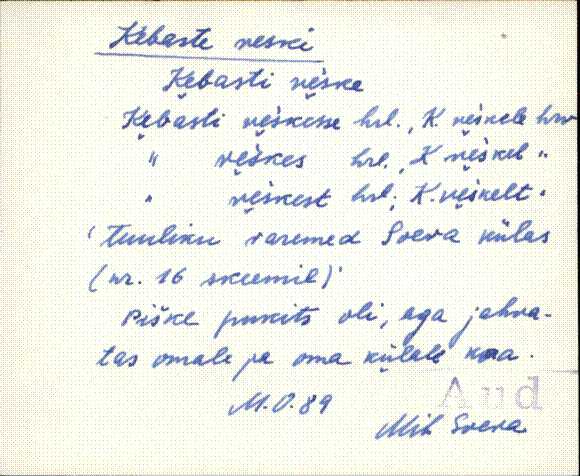 Kebaste veski
Ke̬basti ve̬ške
Ke̬basti ve̬škesse hrl., K. ve̬škele hrv
" ve̬škes hrl., K ve̬škel "
" ve̬škest hrl., K. ve̬škelt "
'Tuuliku varemed Soeva külas
(nr. 16 skeemil)'
Piške pukits oli, aga jahva-
tas omale ja oma külale kaa.
M.O. 89
Aud
Mih Soeva